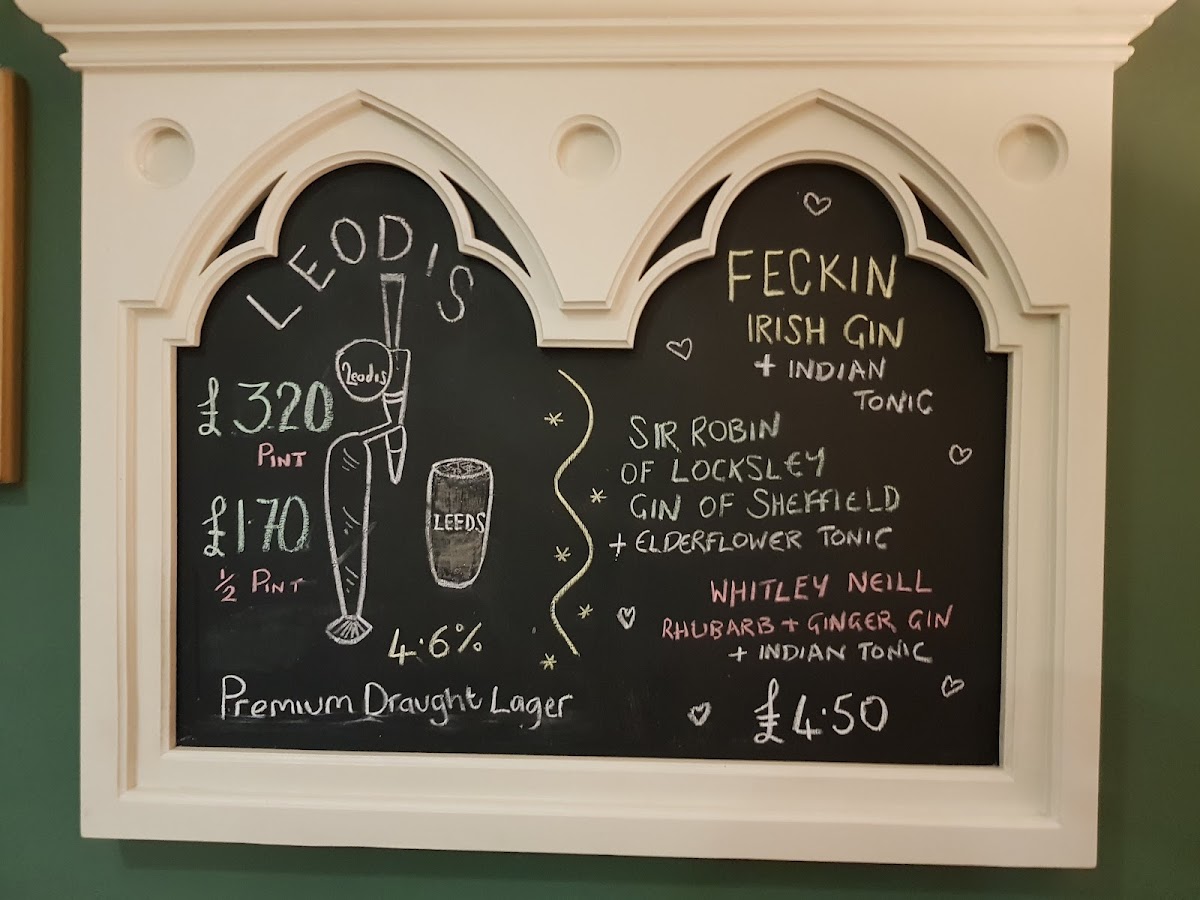 LEODIS
Leodis
£3.20
PINT
£1.70
1/2 PINT
LEEDS
4.6%
Premium Draught Lager
FECKIN
IRISH GIN
+ INDIAN
TONIC
SIR ROBIN
OF LOCKSLEY
GIN OF SHEFFIELD
+ ELDERFLOWER TONIC
WHITLEY NEILL
RHUBARB + GINGER GIN
+ INDIAN TONIC
£4.50